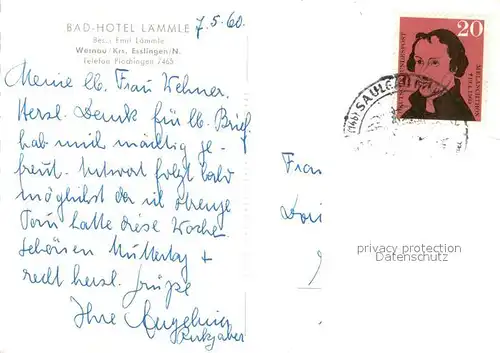 BAD-HOTEL LÄMMLE
7.5.60.
Bes.: Emil Lämmle
Wernau/Krs. Esslingen/N.
Telefon Plochingen 7465
Meine lb. Frau Wehner.
Herzl. Dank für lb. Brief
hab mich mächtig ge-
freut. Antwort folgt bald
möglichst da ich strenge
Tour hatte diese Woche
schönen Muttertag +
recht herzl. Grüße
Ihre
20
DEUTSCHE BUNDESPOST
MELANCHTHON
SAULGAU
Frau
privacy protection
Datenschutz